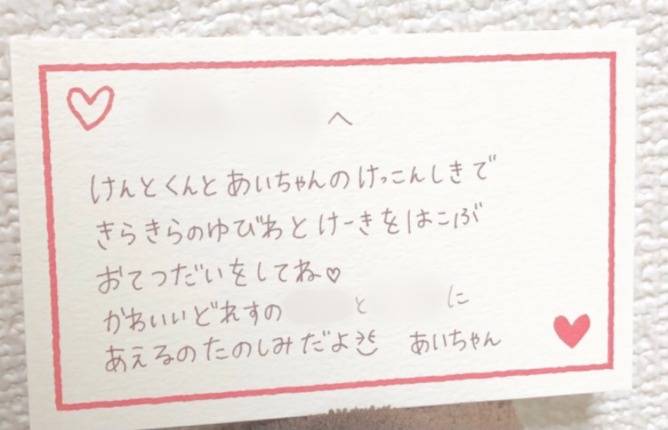 へ
けんとくんとあいちゃんのけっこんしきで
きらきらのゆびわとけーきをはこぶ
おてつだいをしてね♡
かわいいどれすの と に
あえるのたのしみだよ あいちゃん